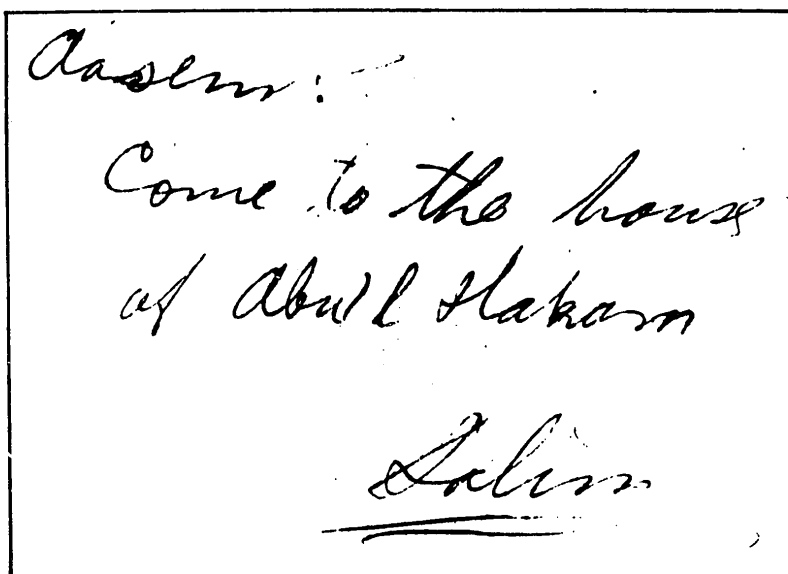 Aasem:
Come to the house
of Abu'l Hakam
Salim